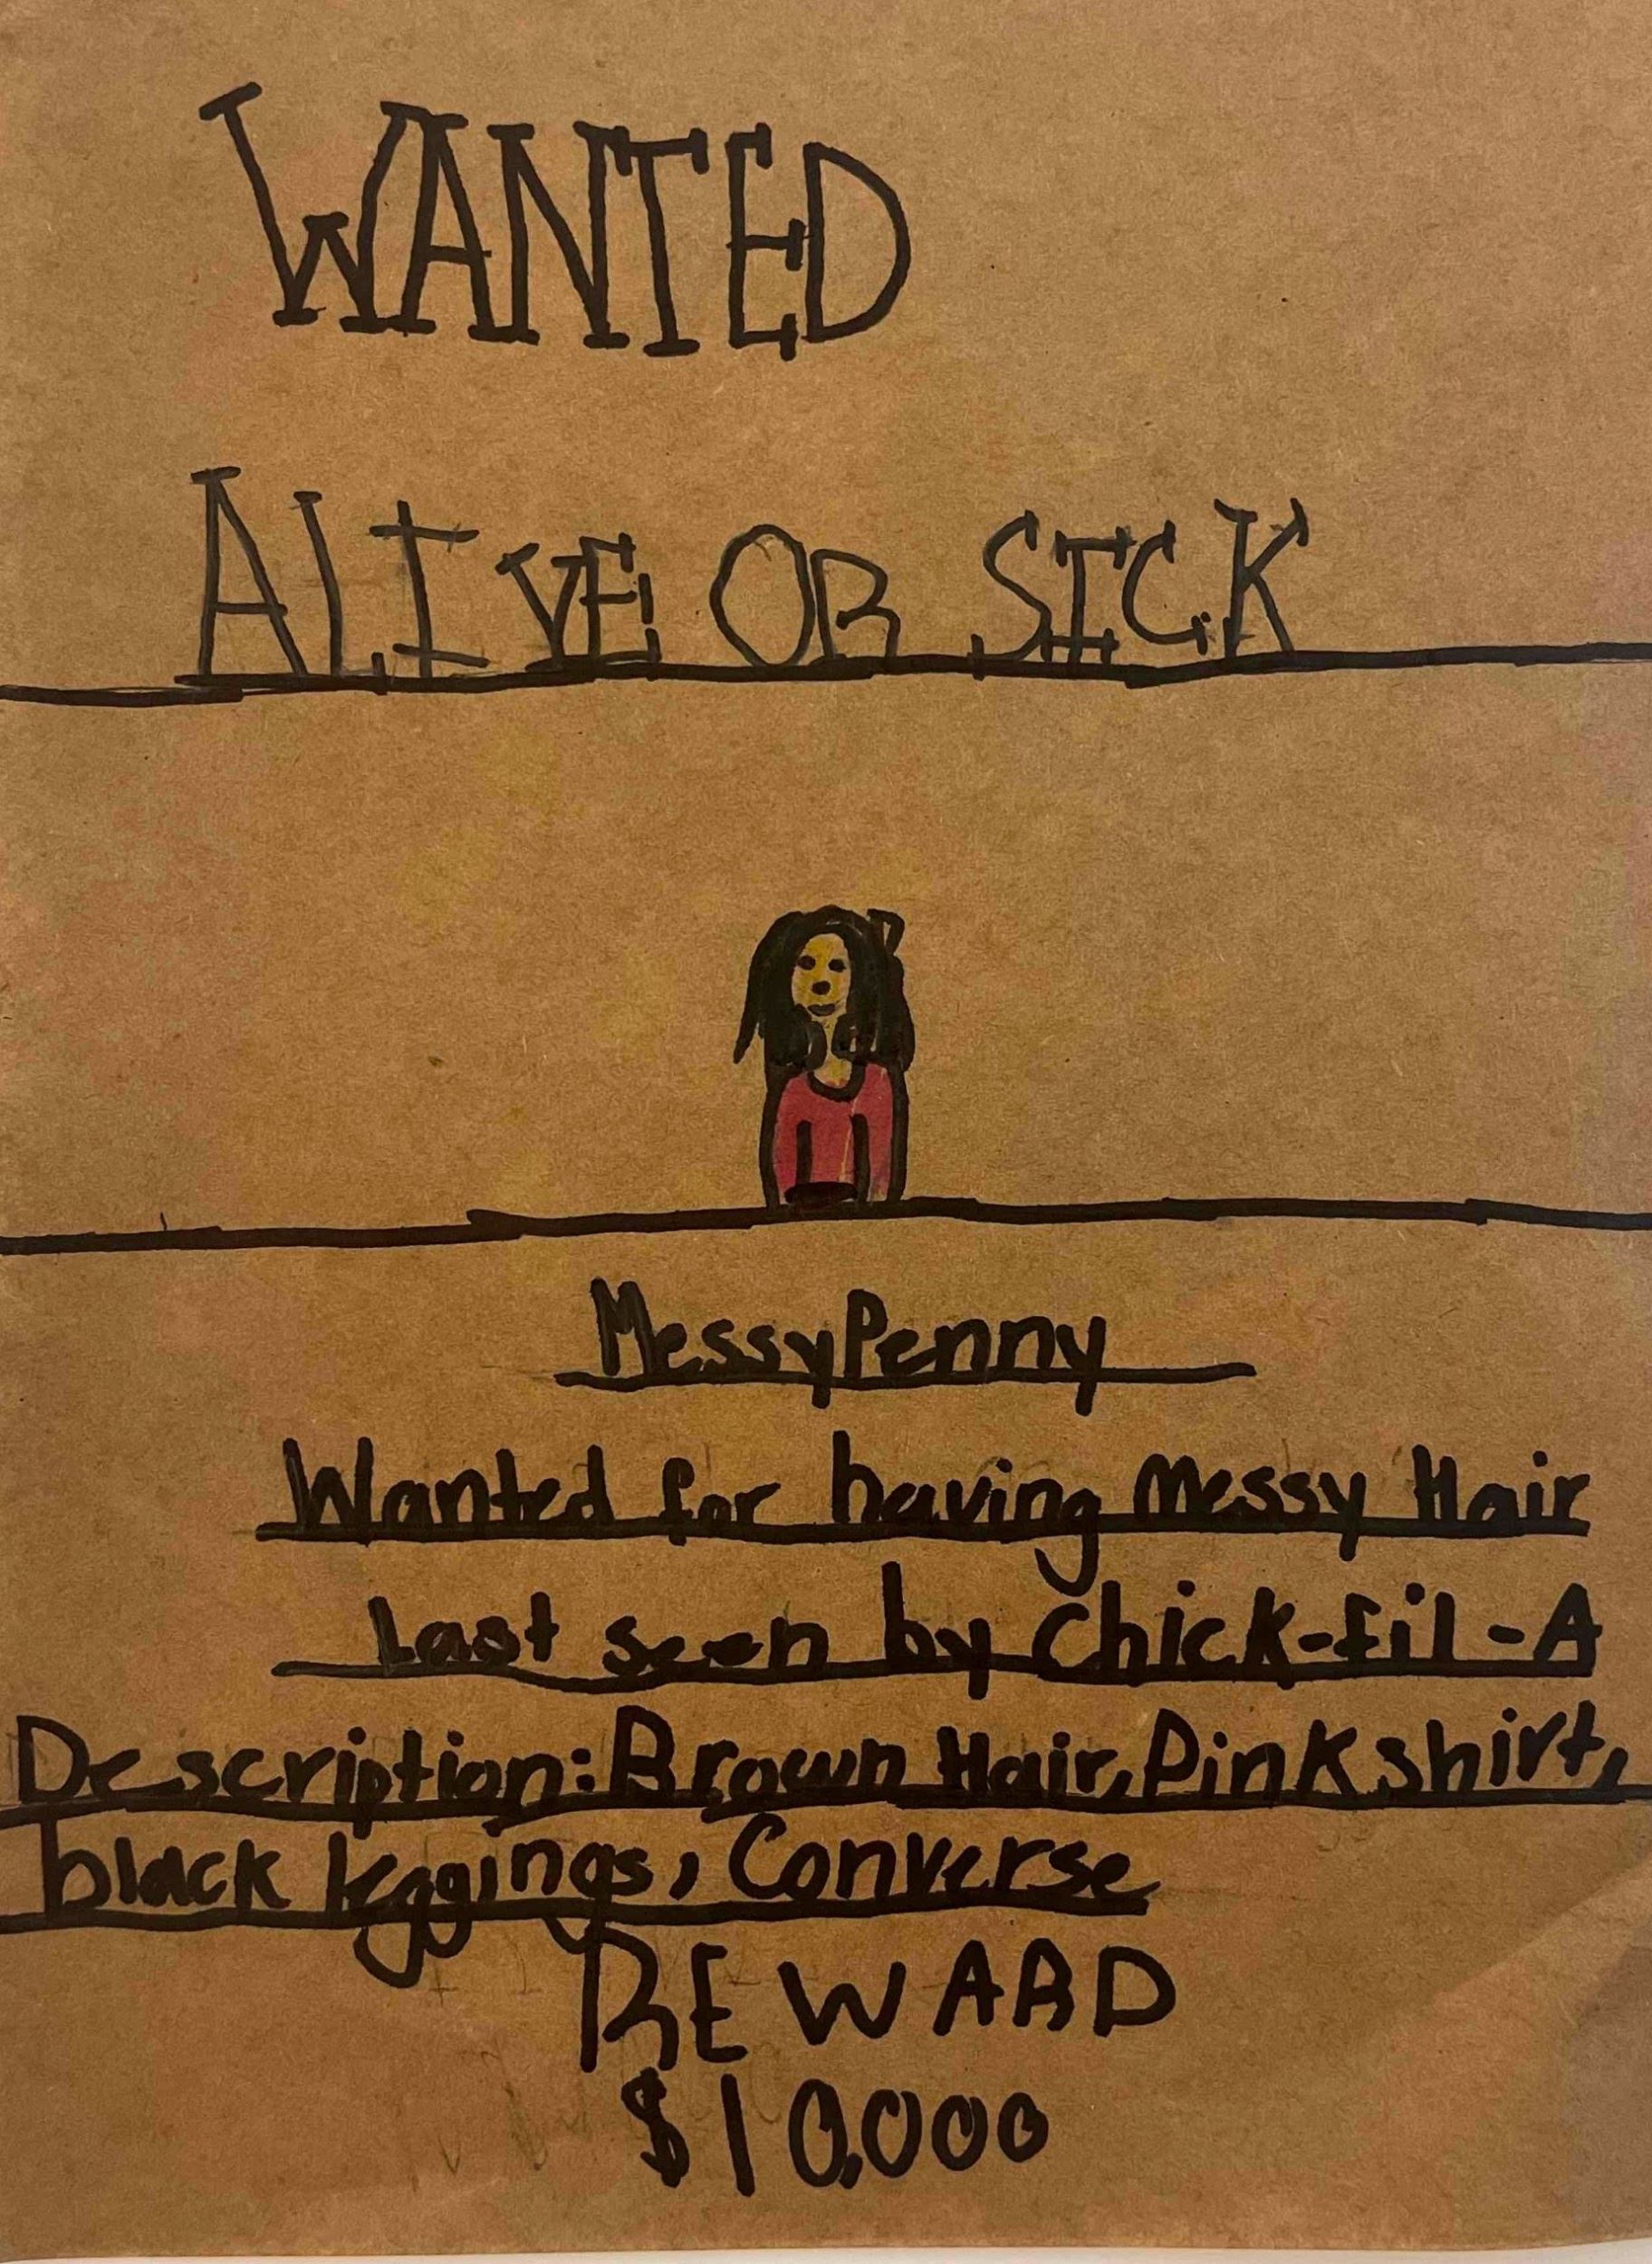 WANTED
ALIVE OR SICK
Messy Penny
Wanted for having Messy Hair
Last seen by Chick-fil-A
Description: Brown Hair, Pink shirt,
black leggings, Converse
REWARD
$10,000